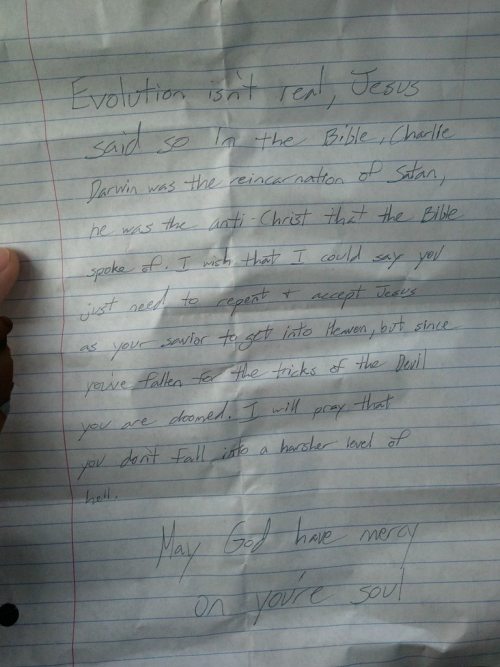 Evolution isn't real, Jesus
said so in the Bible, Charlie
Darwin was the reincarnation of Satan,
he was the anti-Christ that the Bible
spoke of. I wish that I could say you
just need to repent + accept Jesus
as your savior to get into Heaven, but since
you've fallen for the tricks of the Devil
you are doomed. I will pray that
you don't fall into a harsher level of
hell.
May God have mercy
on you're soul